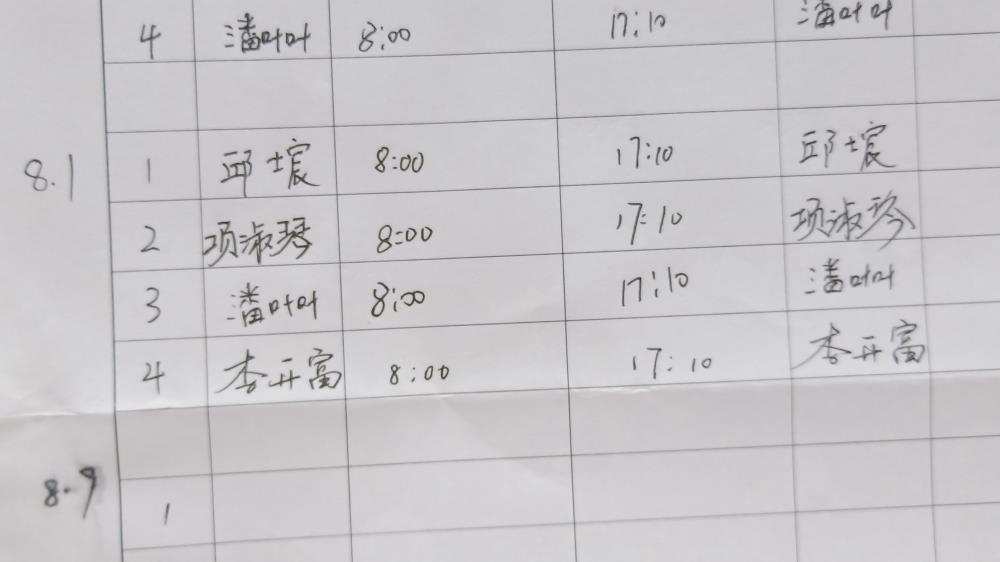 4 潘叶叶 8:00 17:10 潘叶叶
8.1 1 邱士宸 8:00 17:10 邱士宸
2 项淑琴 8:00 17:10 项淑琴
3 潘叶叶 8:00 17:10 潘叶叶
4 李开富 8:00 17:10 李开富
8.9 1